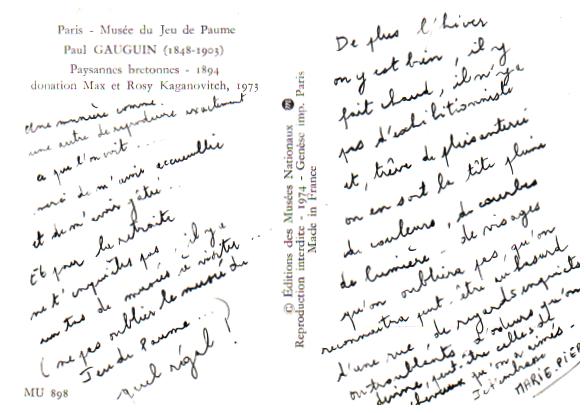 Paris - Musée du Jeu de Paume
Paul GAUGUIN (1848-1903)
Paysannes bretonnes - 1894
donation Max et Rosy Kaganovitch, 1973
Une manière comme
une autre de reproduire exactement
ce que l'on voit ....
merci de m'avoir accueillie
et de m'avoir gâtée ...
Et pour la retraite
ne t'inquiètes pas, il y a
un tas de musées à visiter ...
(ne pas oublier le musée du
Jeu de Paume ...
quel régal !)
MU 898
© Éditions des Musées Nationaux
Reproduction interdite - 1974 - Genèse imp. Paris
Made in France
De plus l'hiver
on y est bien, il y
fait chaud, il n'y a
pas d'exhibitionniste
et, trêve de plaisanterie
on en sort la tête pleine
de couleurs, de courbes
de lumière - de visages
qu'on oubliera pas, qu'on
reconnaîtra peut-être au hasard
d'une rue, de regards inquiets
ou troublants, d'odeurs qu'on
devine, peut-être celles de
cheveux qu'on a aimés -
Je t'embrasse
MARIE-PIER